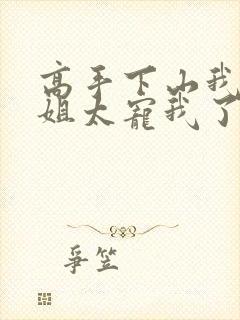 高手下山我
姐太宠我了
争笠